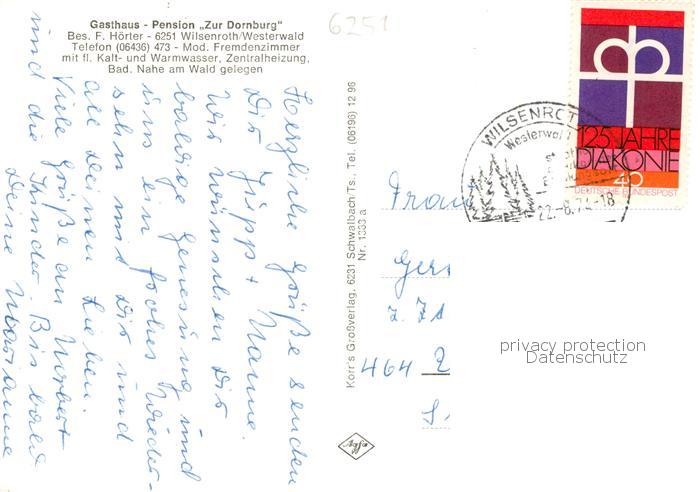 Gasthaus - Pension „Zur Dornburg"
Bes. F. Hörter - 6251 Wilsenroth/Westerwald
Telefon (06436) 473 - Mod. Fremdenzimmer
mit fl. Kalt- und Warmwasser, Zentralheizung,
Bad. Nahe am Wald gelegen
6251
Herzliche Grüße senden
Dir Jupp + Hanne.
Wir wünschen Dir
baldige Genesung und
uns ein frohes Wieder-
sehn mit Dir und
all Deinen Lieben.
Viele Grüße an Norbert
und die Kinder. Bis bald
Deine Marianne
Korr's Großverlag, 6231 Schwalbach/Ts., Tel. (06196) 12 96
Nr. 1333 a
Agfa
WILSENROTH
Westerwal
22.-6.74-18
125 JAHRE
DIAKONIE
40
DEUTSCHE BUNDESPOST
Frau
Ger
z. Zt
464
privacy protection
Datenschutz